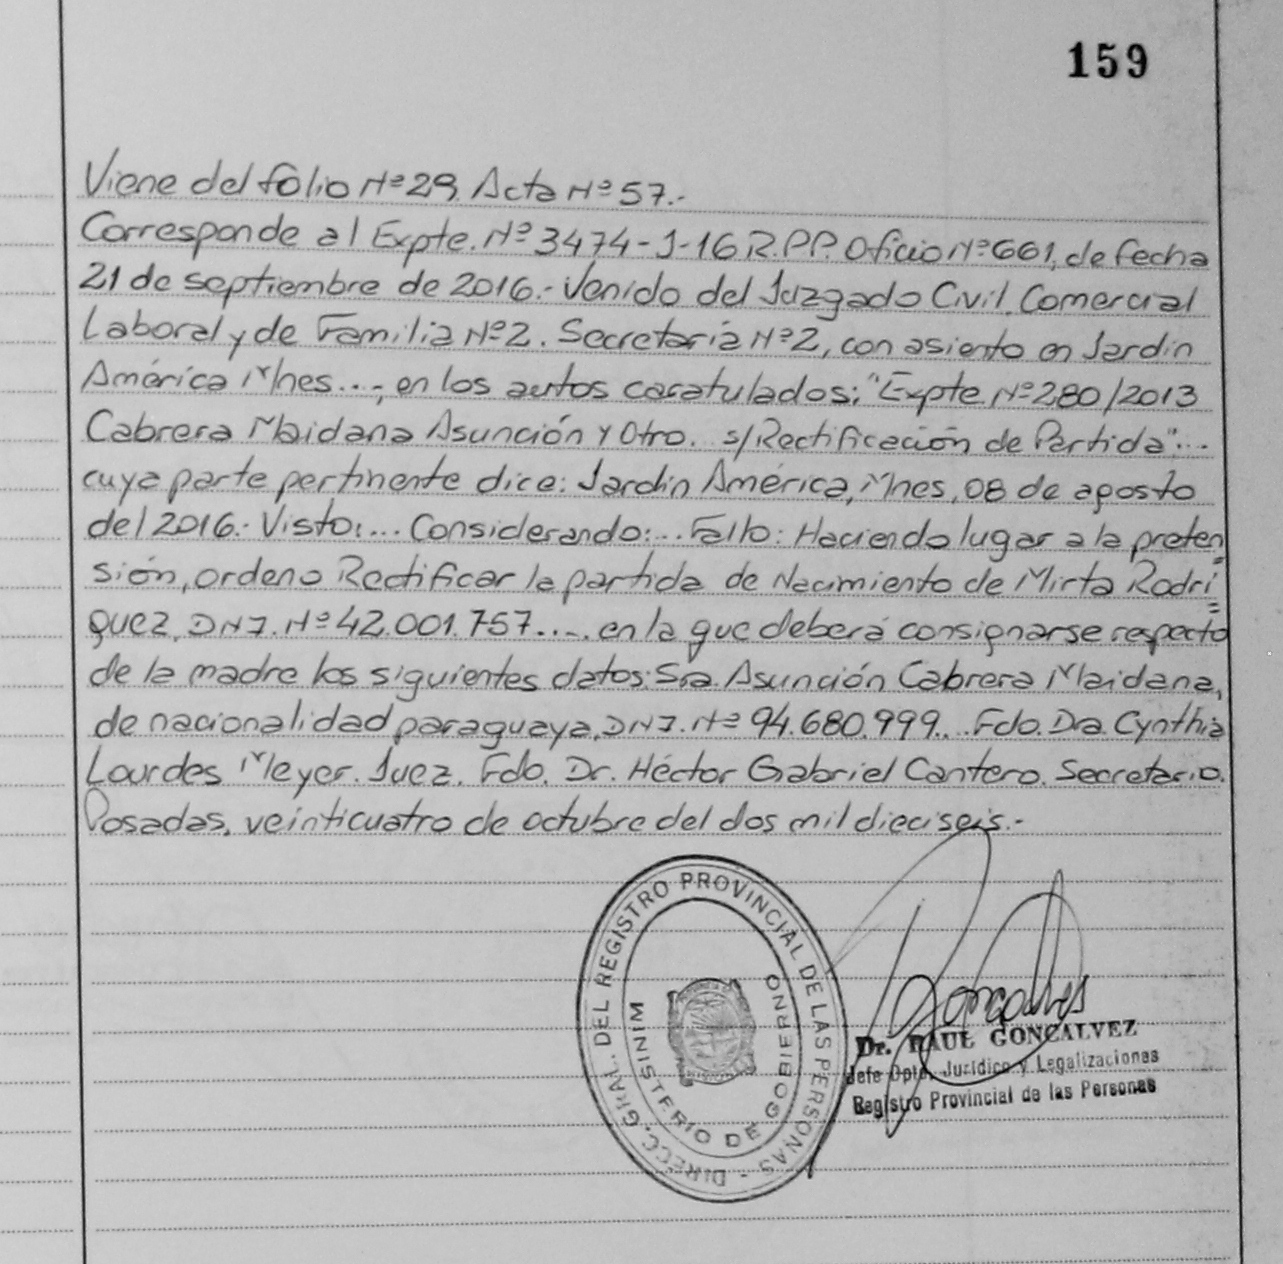 159
Viene del folio Nº 29. Acta Nº 57.-
Corresponde al Expte. Nº 3474-J-16 R.P.P. Oficio Nº 661, de fecha
21 de septiembre de 2016.- Venido del Juzgado Civil. Comercial
Laboral y de Familia Nº 2. Secretaría Nº 2, con asiento en Jardín
América Mnes...., en los autos caratulados: "Expte Nº 280/2013
Cabrera Maidana Asunción y Otro. s/Rectificación de Partida"....
cuya parte pertinente dice: Jardín América, Mnes, 08 de agosto
del 2016.- Visto:... Considerando:... Fallo: Haciendo lugar a la preten
sión, ordeno Rectificar la partida de Nacimiento de Mirta Rodrí
guez, DNI. Nº 42.001.757..... en la que deberá consignarse respecto
de la madre los siguientes datos: Sra. Asunción Cabrera Maidana,
de nacionalidad paraguaya, DNI. Nº 94.680.999... Fdo. Dra. Cynthia
Lourdes Meyer. Juez. Fdo. Dr. Héctor Gabriel Cantero. Secretario.
Posadas, veinticuatro de octubre del dos mil dieciseis.-
DIRECC. GRAL. DEL REGISTRO PROVINCIAL DE LAS PERSONAS -
MINISTERIO DE GOBIERNO
Dr. RAUL GONCALVEZ
Jefe Dpto. Jurídico y Legalizaciones
Registro Provincial de las Personas